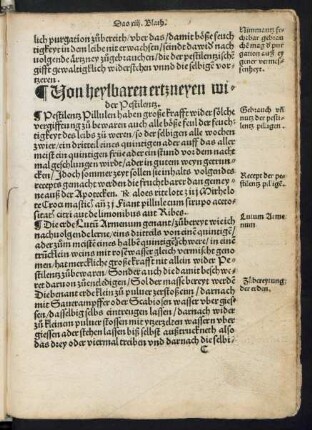 Das xiij. Blath.
lich purgation zůbereit/vber das/damit böße feuch
tigkeyt in den leibe nit erwachsen/seindt da wid nach
volgende ärtzney zůgebrauchen/die der pestilentzische
gifft gewaltiglich widerstehn vnnd die selbige vor
tzeren.
¶ Von heylbaren ertzneyen wi-
der Pestilentz.
¶ Pestilentz Pillulen haben große krafft wider sölche
vergifftung zů bewaren auch alle böße feul der feuch
tigkeyt des leibs zů weren/so der selbigen alle wochen
zwier/ein drittel eines quintigen ader auff das aller
meist ein quintigen frůe ader ein stund vor dem nacht
mal geschlungen wirde/aber in gutem weyn gerun
cken/Jdoch sommerzeyt sollen sie inhalts volgendes
recepts gemacht werden die fruchtbarer dan gemey-
ne auß der Apotecken. ℞ aloes rite loti ʒ ij Mirrhe lo-
te Croci mastic: añ ʒ j Fiant pillule cum sirupo aceto-
sitat: citri aut de limonibus aut Ribes.
¶ Die erde Lutū Armenum genant/zůbereyt wie ich
nachuolgend lerne/eins dritteils von eine quintige/
ader zům meiste eins halbe quintige schwere/in einē
trůncklein weins mit rosewasser gleich vermischt genō-
men/hat merckliche große krafft nit allein wider Pe
stilentz zůbewaren/Sonder auch die damit beschwe-
ret daruon zůentledigen/Solder masse bereyt werdē
Die bemant erde klein zů pulver zerstoße inn/darnach
mit Saurampffer oder Scabiosen wasser vber gies-
sen/dasselbig selbs eintreugen lassen/darnach wider
zů kleinem pulver stossen mit ytzertzelten wassern vber
giessen ader stehen lassen biß selbst außtrucknet also
das drey oder viermal treiben vnd darnach die selbi-
C
Gebrauch vñ
nutz der pesti-
lentz pilagen.
Recept der pe-
stilentz piligē.
Lutum Arme
num
Zůbereytung
der erden.